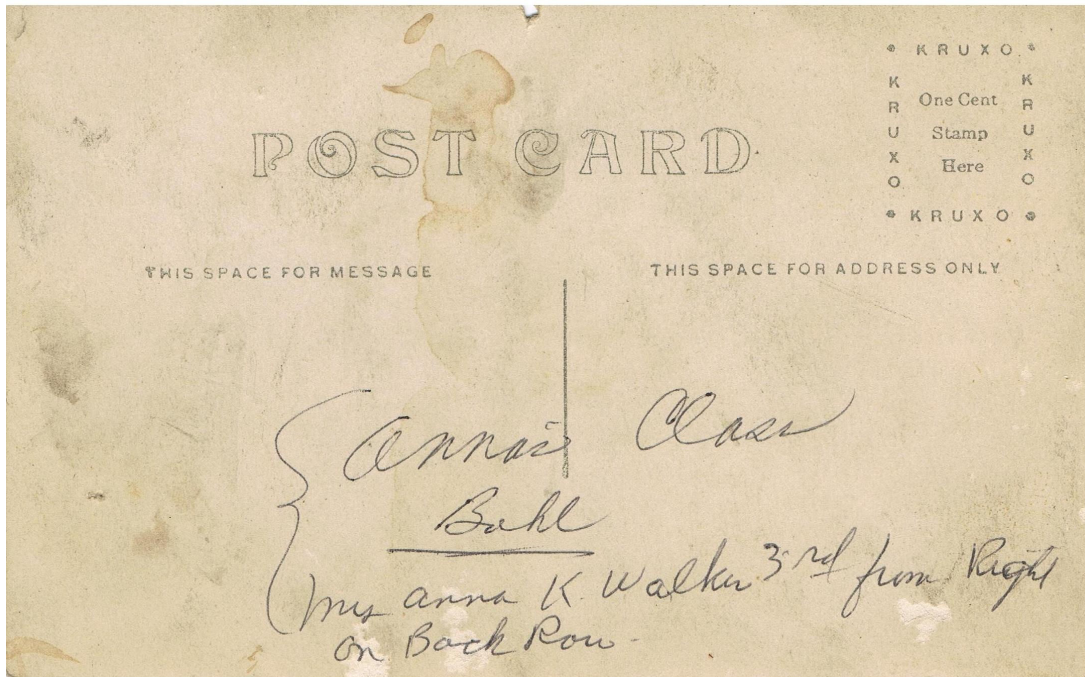 POST CARD
KRUXO
KRUXO
KRUXO
One Cent
Stamp
Here
KRUXO
THIS SPACE FOR MESSAGE
THIS SPACE FOR ADDRESS ONLY
Anna's Class
Buhl
Mrs Anna K. Walker 3rd from Right
on Back Row.